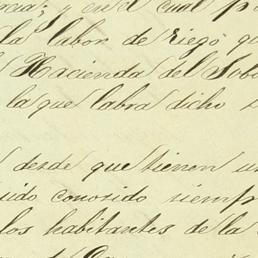 y en el cual p
la labor de riego, qu
Hacienda del Sob
la que labra dicho
desde que tienen un
ido conosido siemp
los habitantes de la